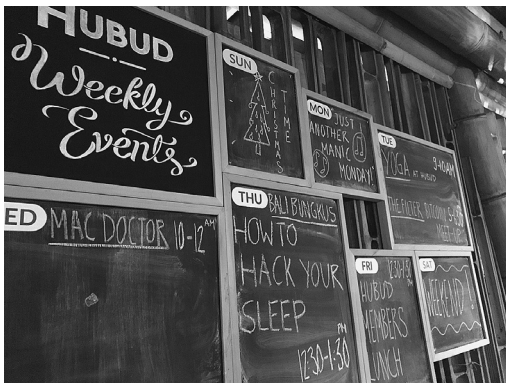 HUBUD
Weekly
Events
SUN
CHRISTMAS
TIME
MON
JUST
ANOTHER
MANIC
MONDAY!
TUE
YOGA AT HUBUD
THE FILTER
ED
MAC DOCTOR 10-12 AM
THU
BALI BUNGKUS
HOW TO
HACK YOUR
SLEEP
PM
12:30-1:30
FRI
HUBUD
MEMBERS
LUNCH
SAT
WEEKEND!